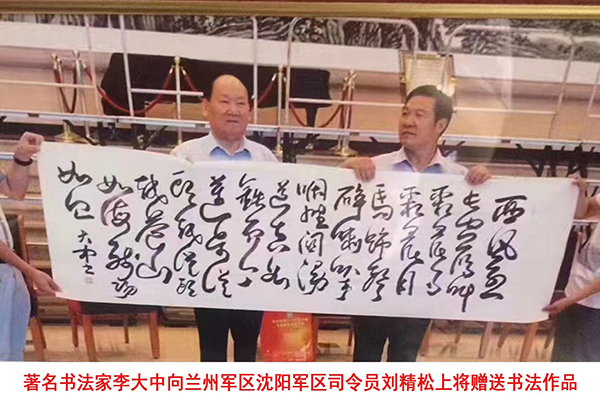 西风烈
长空雁叫
霜晨月
霜晨月
马蹄声
碎喇叭声
咽雄关漫
道真如
铁而今
迈步从
头越从头
越苍山
如海残阳
如血 大中
著名书法家李大中向兰州军区沈阳军区司令员刘精松上将赠送书法作品